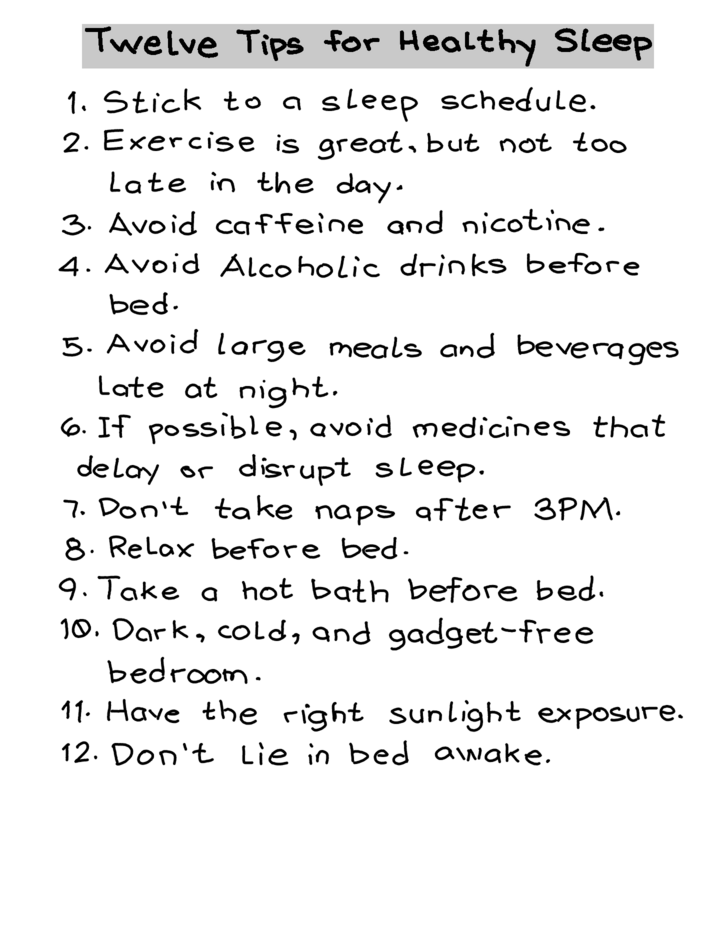 Twelve Tips for Healthy Sleep
1. Stick to a sleep schedule.
2. Exercise is great, but not too
late in the day.
3. Avoid caffeine and nicotine.
4. Avoid Alcoholic drinks before
bed.
5. Avoid large meals and beverages
late at night.
6. If possible, avoid medicines that
delay or disrupt sleep.
7. Don't take naps after 3PM.
8. Relax before bed.
9. Take a hot bath before bed.
10. Dark, cold, and gadget-free
bedroom.
11. Have the right sunlight exposure.
12. Don't lie in bed awake.